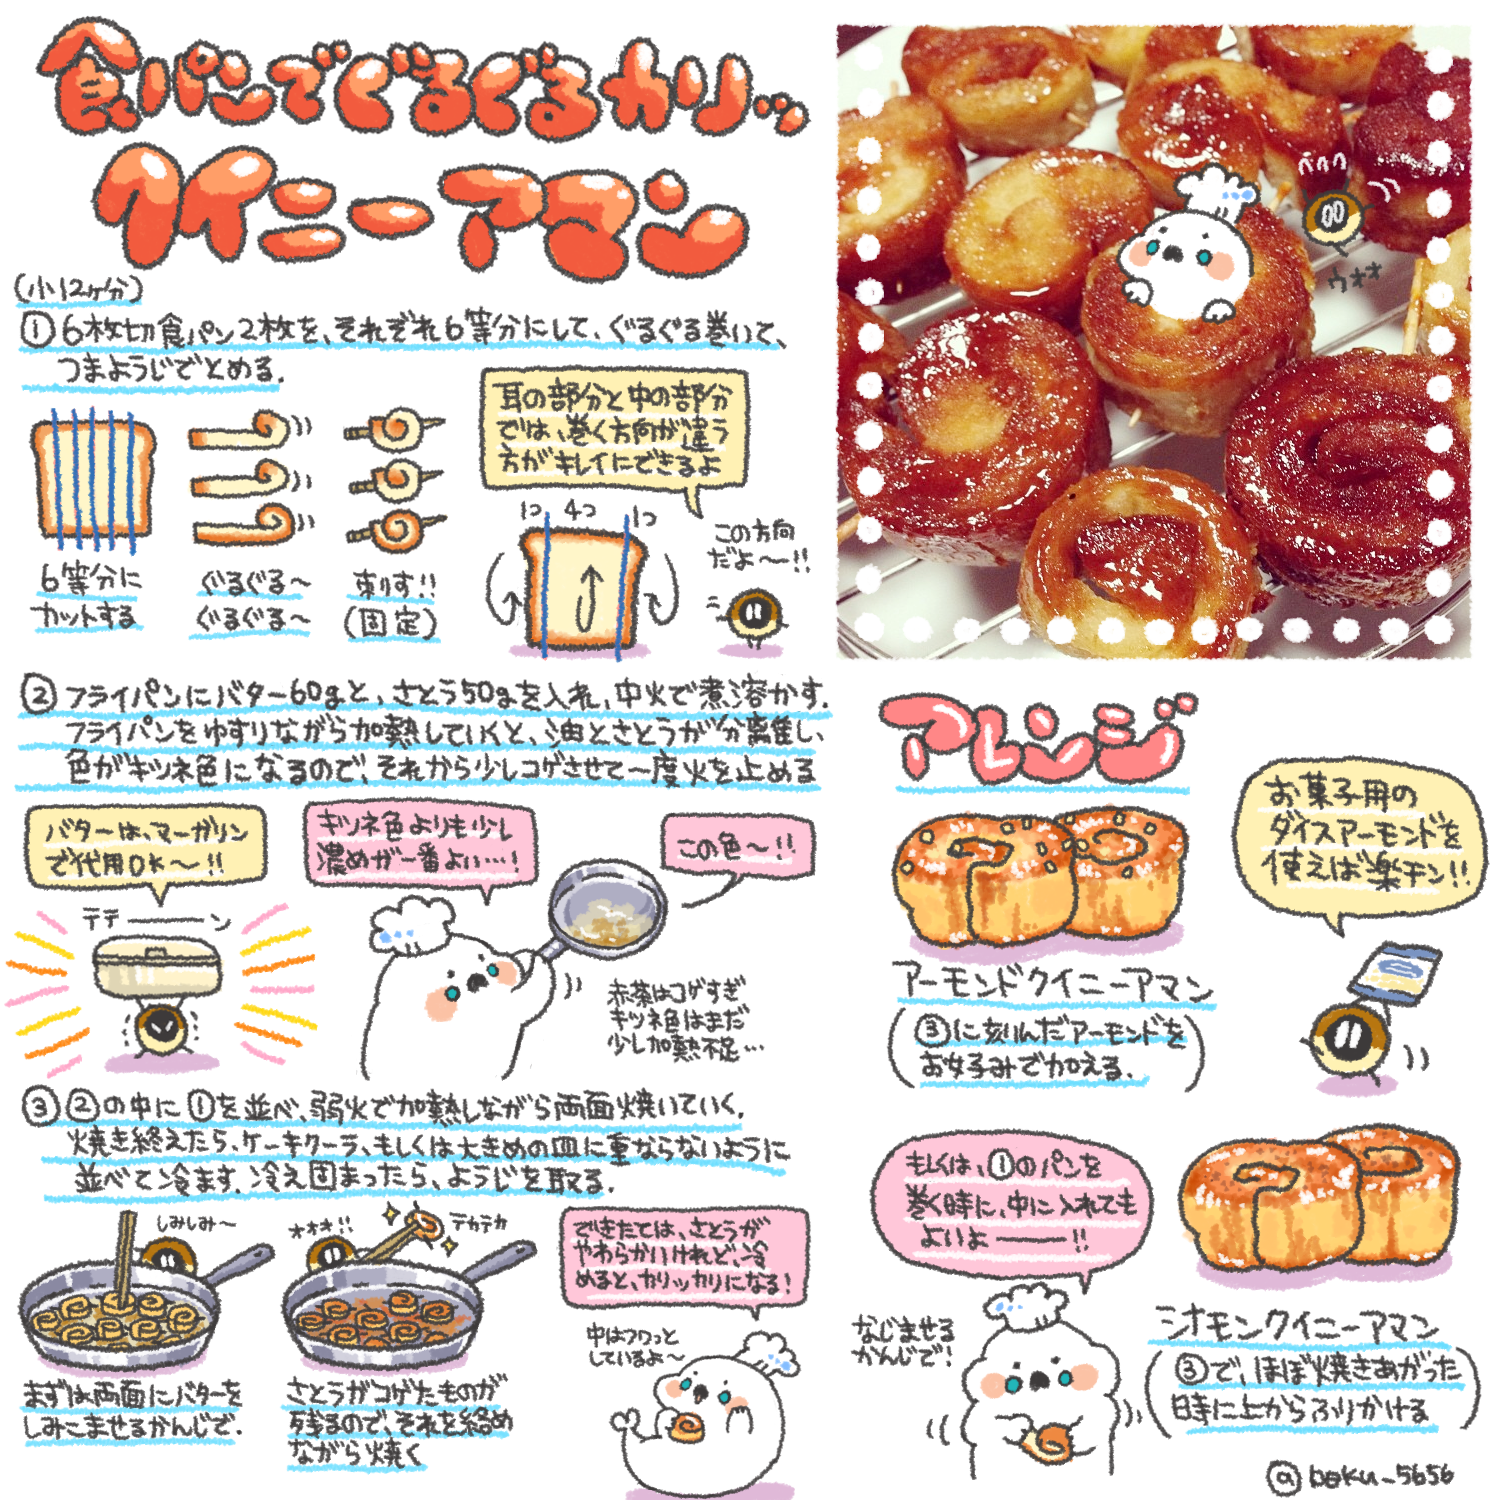 食パンでぐるぐるカリッ
クイニーアマン
(小12ヶ分)
①6枚切食パン2枚を、それぞれ6等分にして、ぐるぐる巻いて、
つまようじでとめる.
耳の部分と中の部分
では、巻く方向が違う
方がキレイにできるよ
1つ 4つ 1つ
この方向
だよ〜!!
6等分に
カットする
ぐるぐる〜
ぐるぐる〜
刺す!!
(固定)
②フライパンにバター60gと、さとう50gを入れ、中火で煮溶かす.
フライパンをゆすりながら加熱していくと、油とさとうが分離し、
色がキツネ色になるので、それから少しコゲさせて一度火を止める
バターは、マーガリン
で代用OK〜!!
キツネ色よりも少し
濃めが一番よい…!
この色〜!!
テテーーーン
赤茶はコゲすぎ
キツネ色はまだ
少し加熱不足…
③②の中に①を並べ、弱火で加熱しながら両面焼いていく.
焼き終えたら、ケーキクーラ、もしくは大きめの皿に重ならないように
並べて冷ます.冷え固まったら、ようじを取る.
しみしみ〜
オオオ!!
テカテカ
まずは両面にバターを
しみこませるかんじで.
さとうがコゲたものが
残るので、それを絡め
ながら焼く
できたては、さとうが
やわらかいけれど、冷
めると、カリッカリになる!
中はフワっと
しているよ〜
ウオオ
アレンジ
お菓子用の
ダイスアーモンドを
使えば楽チン!!
アーモンドクイニーアマン
(③に刻んだアーモンドを
お好みで加える.)
もしくは、①のパンを
巻く時に、中に入れても
よいよーーー!!
なじませる
かんじで!
シナモンクイニーアマン
(③で、ほぼ焼きあがった
時に上からふりかける)
@boku_5656